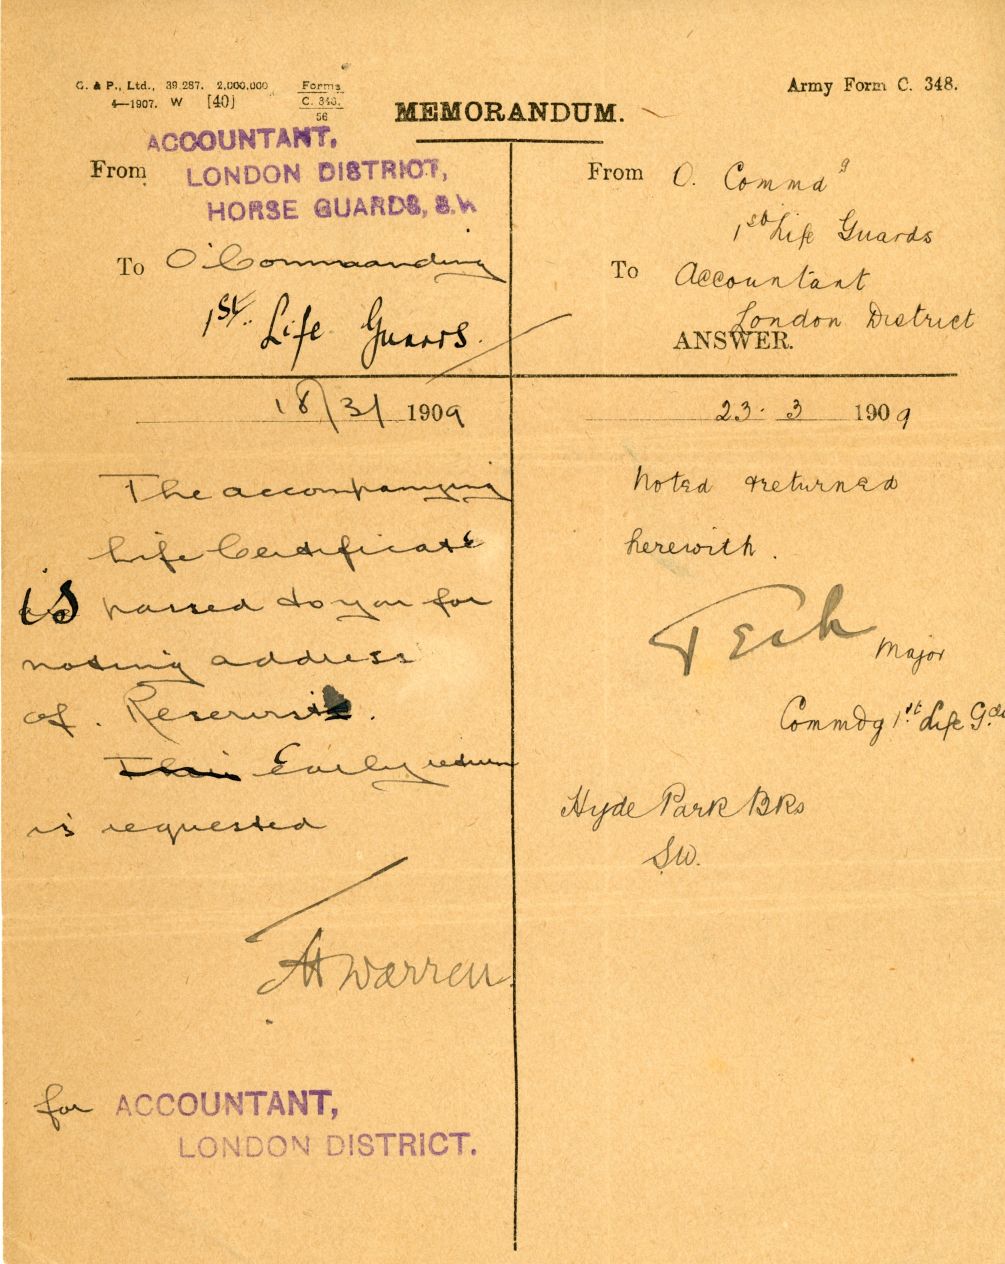 G. & P., Ltd., 39,287. 2,000,000
4—1907. W [40]
Forms
C. 348.
56
Army Form C. 348.
MEMORANDUM.
From
ACCOUNTANT,
LONDON DISTRICT,
HORSE GUARDS, S.W
To O'Commaanding
1st Life Guards.
18/3/1909
The accompanying
Life Certificate
is passed to you for
noting address
of Reservist.
Early return
is requested
Warren
for ACCOUNTANT,
LONDON DISTRICT.
From O. Commdg
1st Life Guards
To Accountant
London District
ANSWER.
23. 3 1909
Noted & returned
herewith.
Teck Major
Commdg 1st Life Gds
Hyde Park Bks
SW.